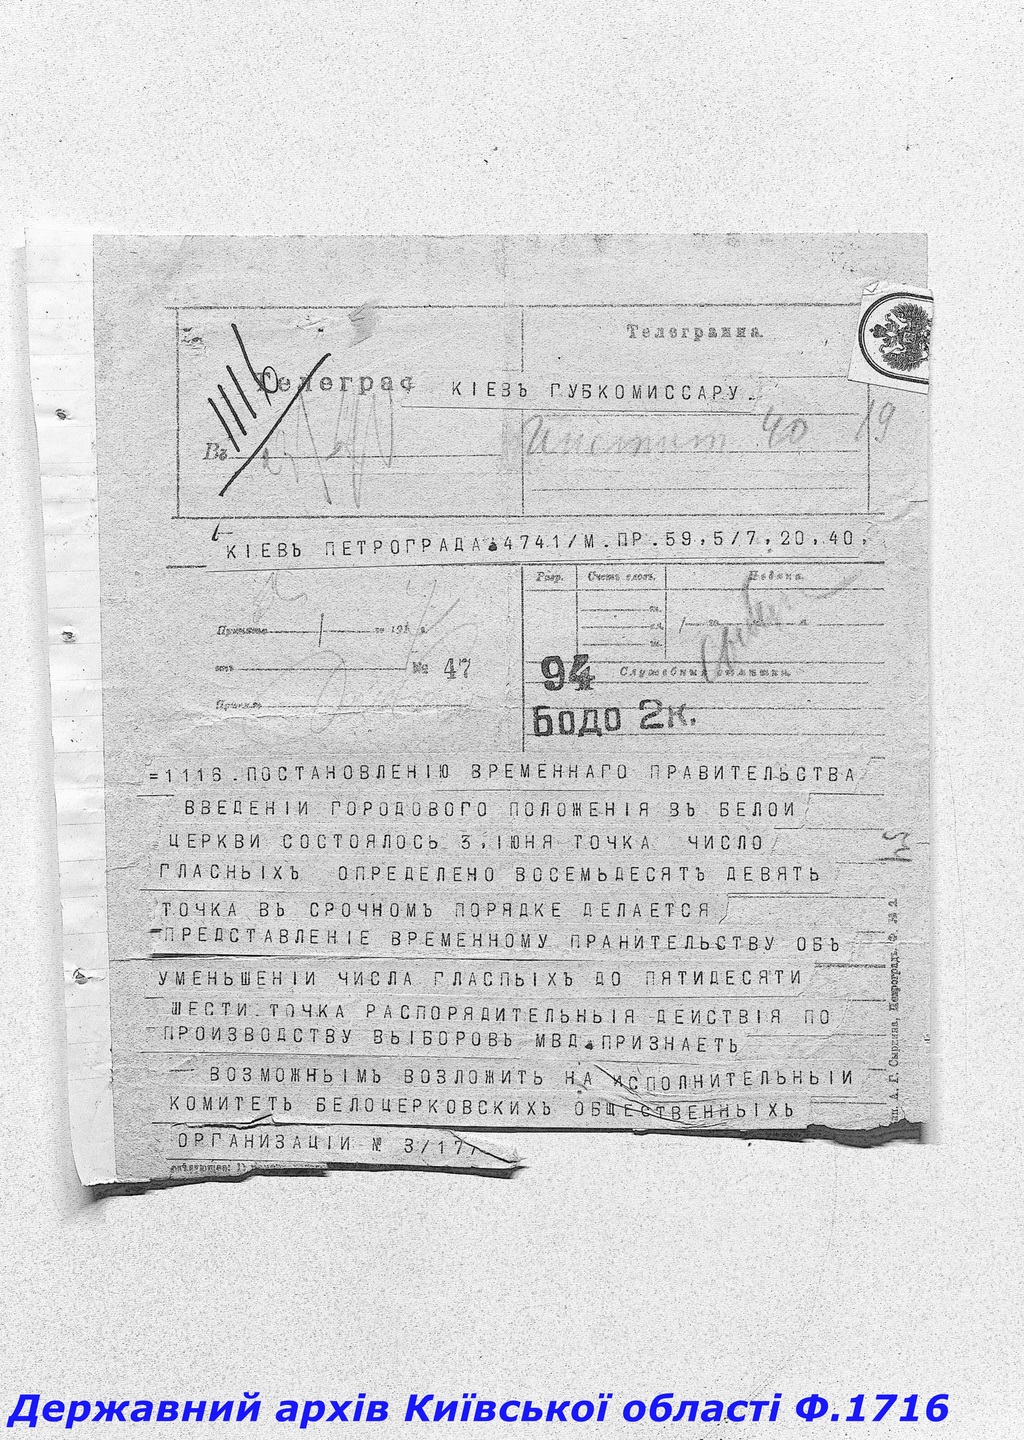 Телеграмма.
1116
Телеграф
КІЕВЪ ГУБКОМИССАРУ.
Въ
40 19
КІЕВЪ ПЕТРОГРАДА 4741/М.ПР.59,5/7,20,40,
Разр. Счетъ словъ.
№ 47
94 Служебныя
Бодо 2к.
=1116.ПОСТАНОВЛЕНІЮ ВРЕМЕННАГО ПРАВИТЕЛЬСТВА
ВВЕДЕНІИ ГОРОДОВОГО ПОЛОЖЕНІЯ ВЪ БЕЛОИ
ЦЕРКВИ СОСТОЯЛОСЬ 3,ІЮНЯ ТОЧКА ЧИСЛО
ГЛАСНЫХЪ ОПРЕДЕЛЕНО ВОСЕМЬДЕСЯТЬ ДЕВЯТЬ
ТОЧКА ВЪ СРОЧНОМЪ ПОРЯДКЕ ДЕЛАЕТСЯ
ПРЕДСТАВЛЕНІЕ ВРЕМЕННОМУ ПРАНИТЕЛЬСТВУ ОБЪ
УМЕНЬШЕНІИ ЧИСЛА ГЛАСПЫХЪ ДО ПЯТИДЕСЯТИ
ШЕСТИ ТОЧКА РАСПОРЯДИТЕЛЬНЫЯ ДЕЙСТВІЯ ПО
ПРОИЗВОДСТВУ ВЫБОРОВЪ МВД ПРИЗНАЕТЬ
ВОЗМОЖНЫМЪ ВОЗЛОЖИТЬ НА ИСПОЛНИТЕЛЬНЫЙ
КОМИТЕТЬ БЕЛОЦЕРКОВСКИХЪ ОБЩЕСТВЕННЫХЪ
ОРГАНИЗАЦІИ № 3/177
А. Г. Сыркина, Петроградъ. Ф. № 2.
Державний архів Київської області Ф.1716